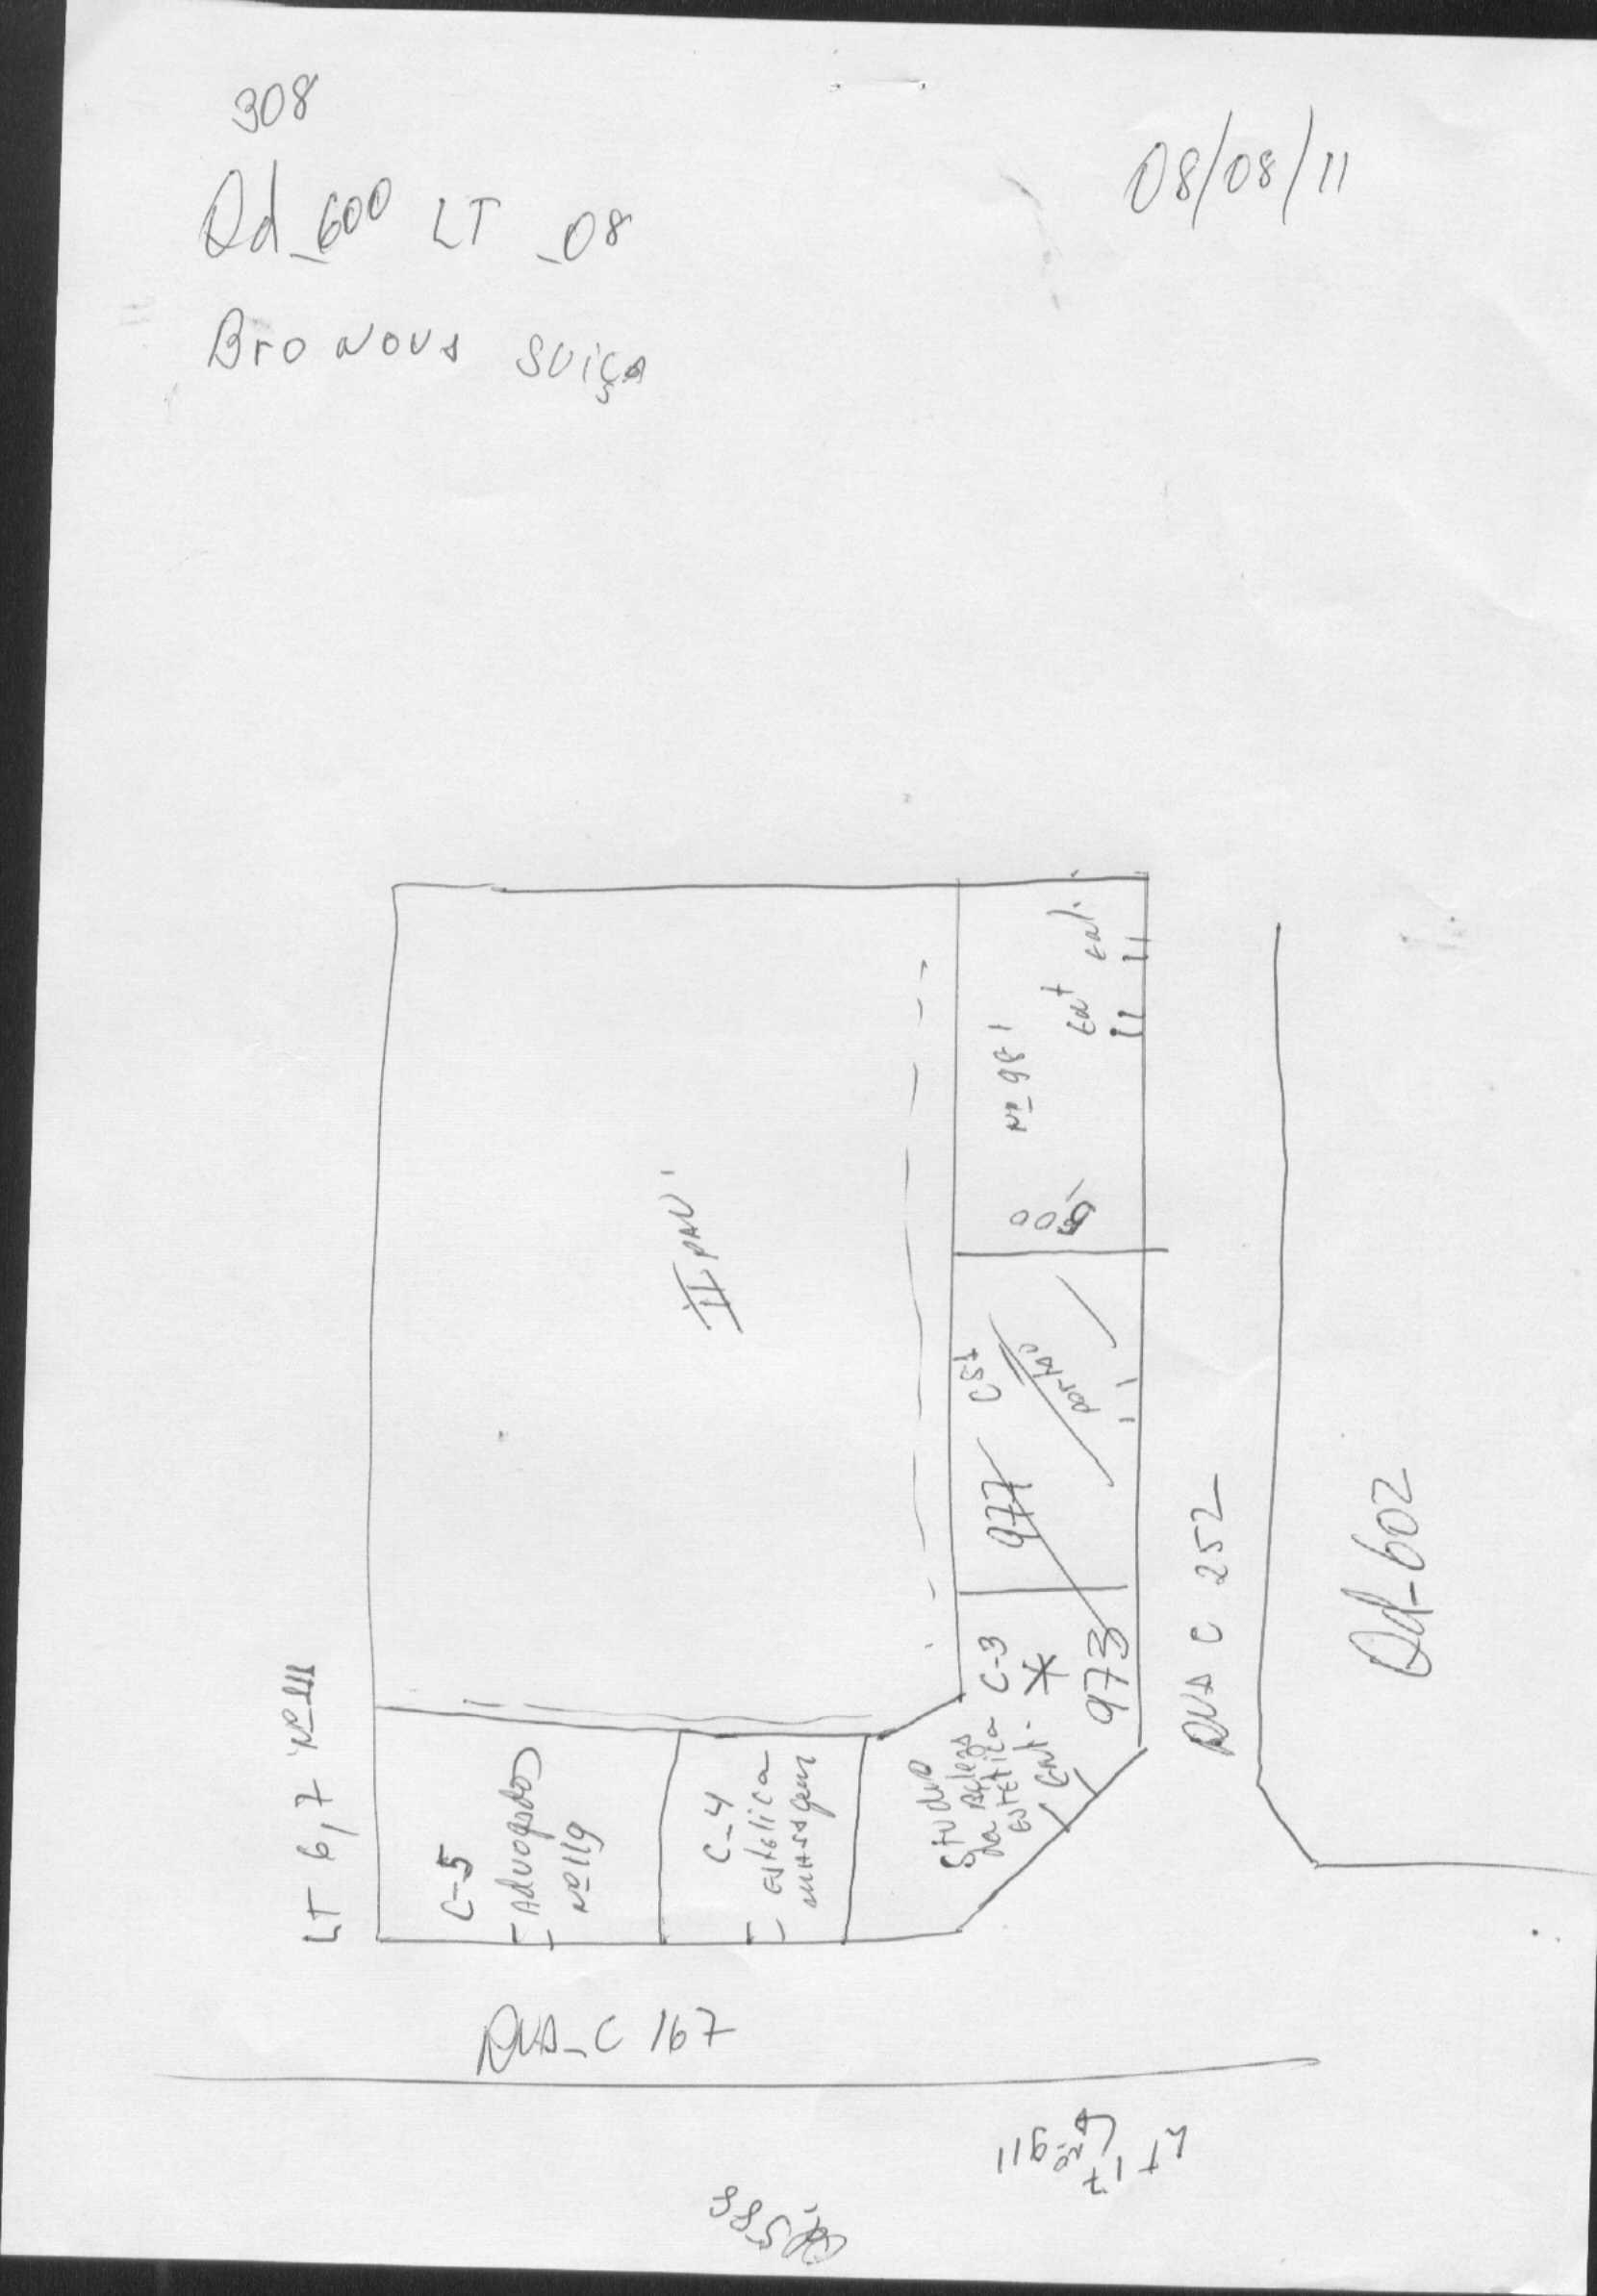 308
08/08/11
Qd_600 LT _08
Bro NOVA SUIÇA
Nº 981
Ent Ent.
II PAV'
CS1
portão
977
C-3
973
Studio
da Beleza
Estética
Ent.
RUA C 252
Qd-602
LT 6,7 Nº 111
C-5
Advogados
Nº 119
C-4
Estética
massagem
RUA_C 167
LT 17